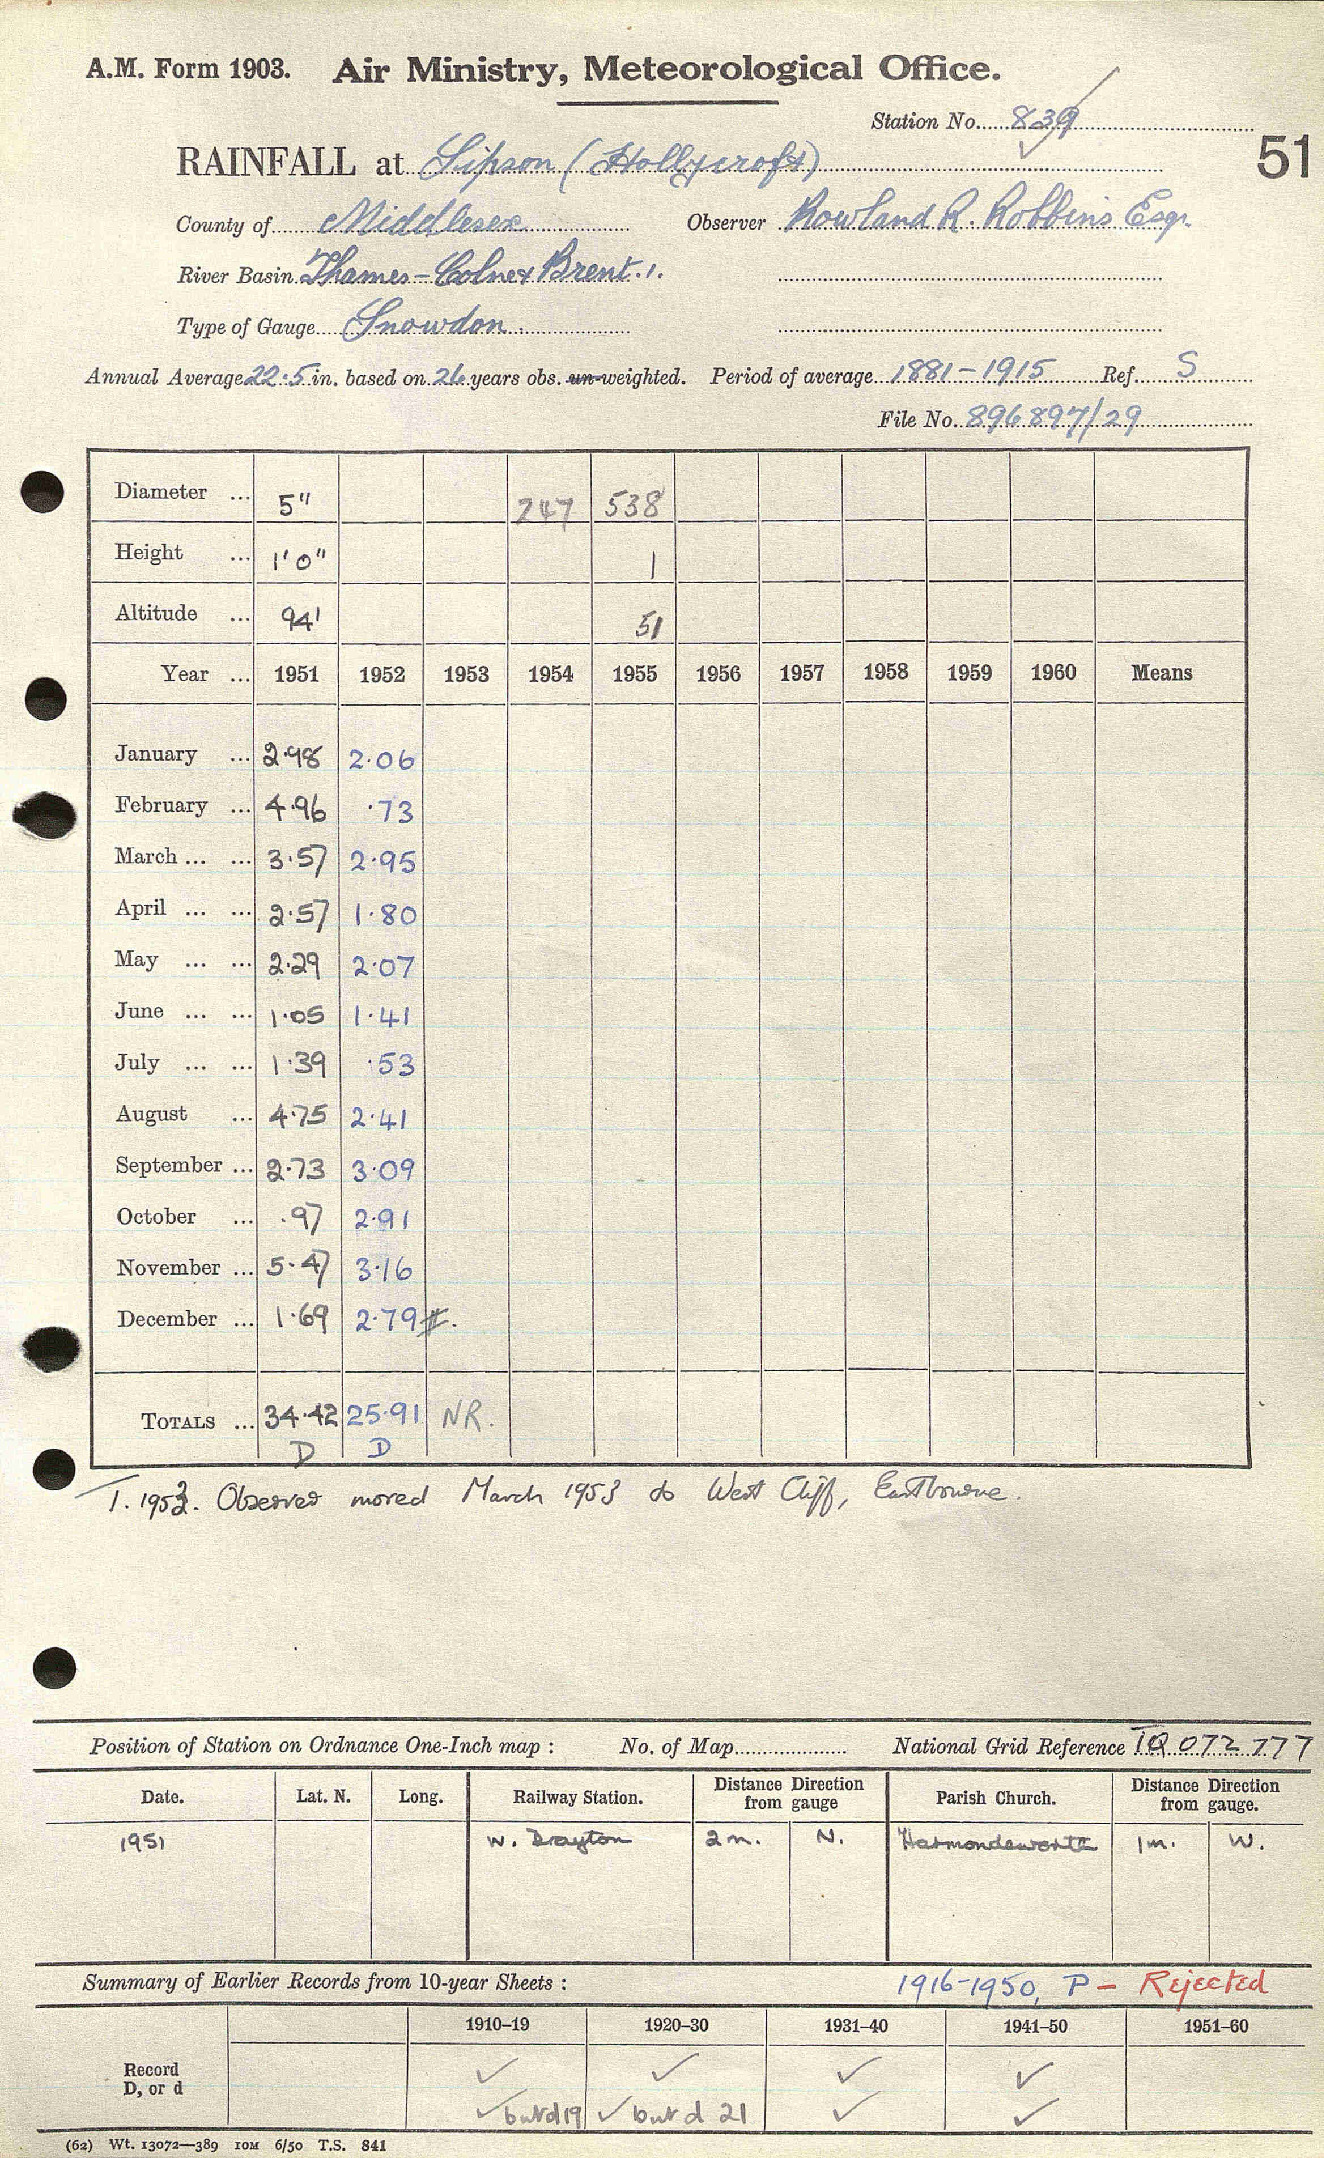 A.M. Form 1903. Air Ministry, Meteorological Office.
Station No. 839
51
RAINFALL at Sipson (Hollycroft)
County of Middlesex Observer Rowland R. Robbins Esqr.
River Basin Thames - Colne & Brent.
Type of Gauge Snowdon
Annual Average 22.5 in. based on 26 years obs. un-weighted. Period of average 1881-1915 Ref. S
File No. 896897/29
Diameter ... 5" 747 538
Height ... 1'0" 1
Altitude ... 94' 51
Year ... 1951 1952 1953 1954 1955 1956 1957 1958 1959 1960 Means
January ... 2.98 2.06
February ... 4.96 .73
March ... ... 3.57 2.95
April ... ... 2.57 1.80
May ... ... 2.29 2.07
June ... ... 1.05 1.41
July ... ... 1.39 .53
August ... 4.75 2.41
September ... 2.73 3.09
October ... .97 2.91
November ... 5.47 3.16
December ... 1.69 2.79 #.
TOTALS ... 34.42 25.91 NR.
D D
T. 1953. Observer moved March 1953 to West Cliff, Eastbourne.
Position of Station on Ordnance One-Inch map : No. of Map National Grid Reference TQ 072 777
Date. Lat. N. Long. Railway Station. Distance Direction from gauge Parish Church. Distance Direction from gauge.
1951 W. Drayton 2m. N. Harmondsworth 1m. W.
Summary of Earlier Records from 10-year Sheets : 1916-1950, P - Rejected
1910–19 1920–30 1931–40 1941–50 1951–60
Record ✓ ✓ ✓ ✓
D, or d ✓ but d 19 ✓ but d 21 ✓ ✓
(62) Wt. 13072—389 10M 6/50 T.S. 841